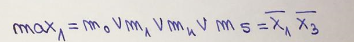 max₁ = m₀ ∨ m₁ ∨ m₄ ∨ m5 = x̅₁ x̅₃